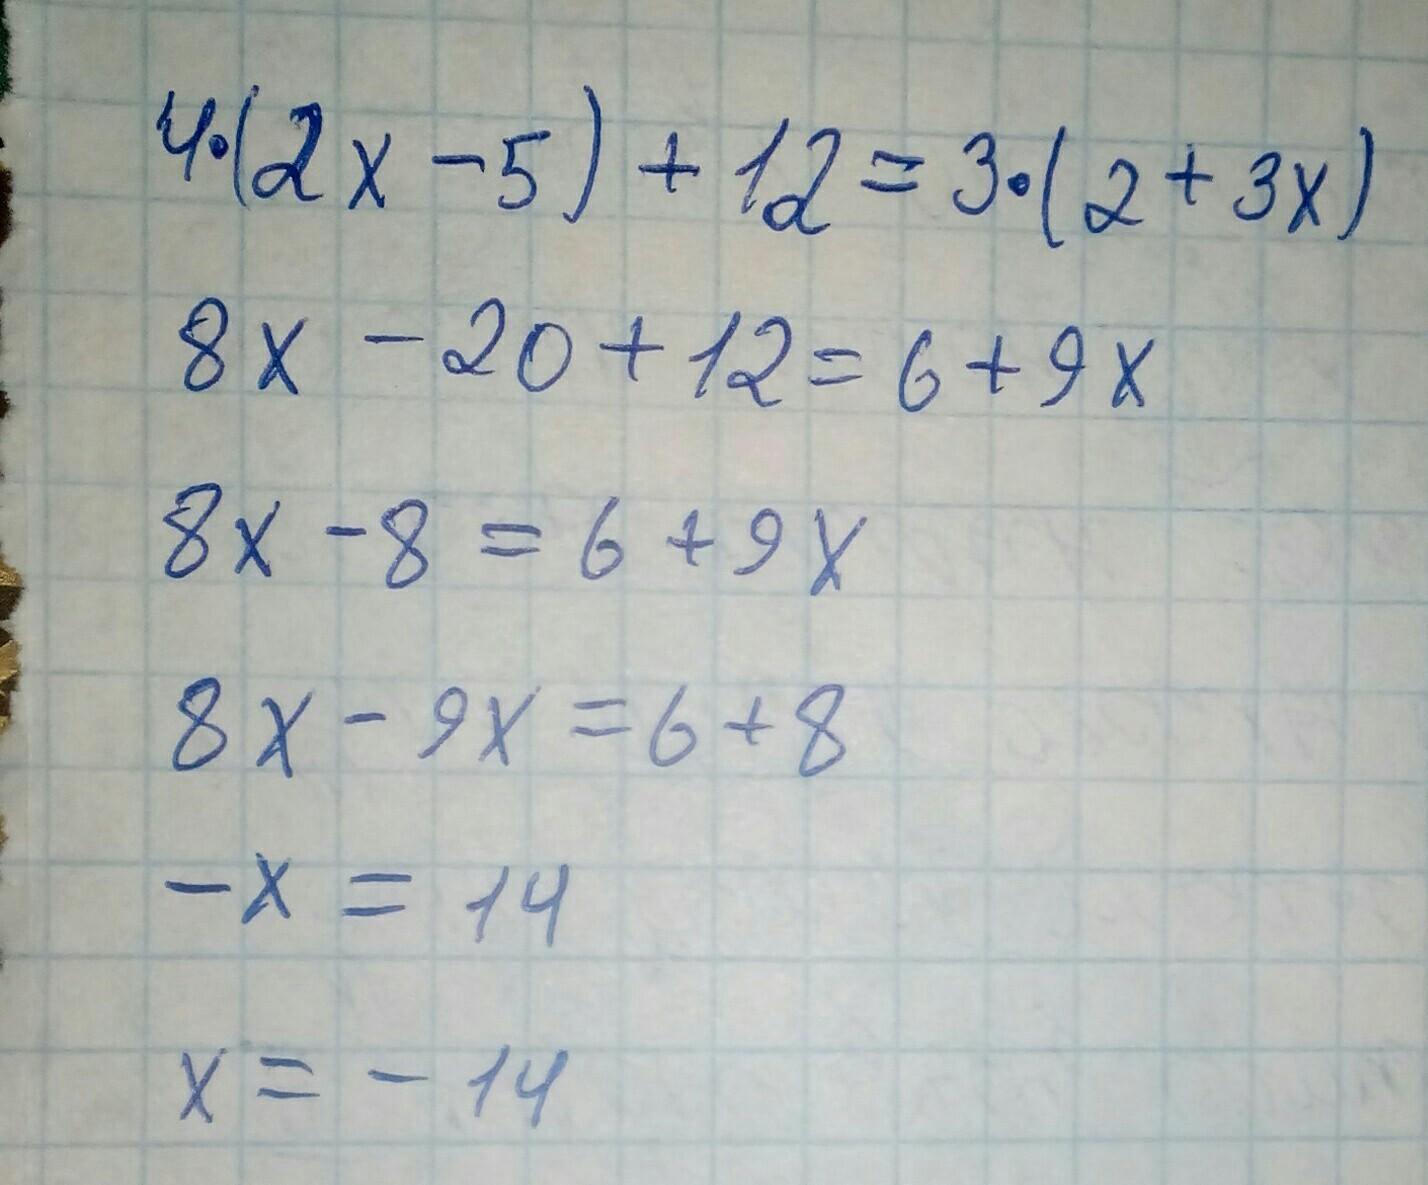 4·(2x-5)+12=3·(2+3x)
8x-20+12=6+9x
8x-8=6+9x
8x-9x=6+8
-x=14
x=-14